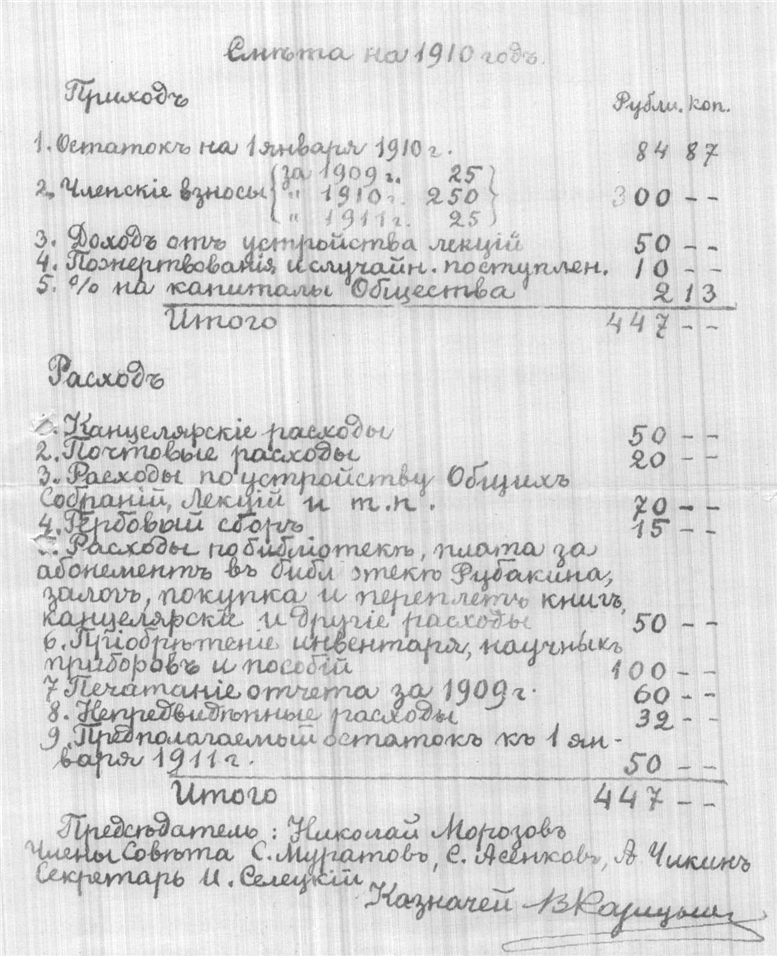 Смѣта на 1910 годъ.
Приходъ Рубли. коп.
1. Остатокъ на 1 января 1910 г. 84 87
за 1909 г. 25
2. Членскіе взносы " 1910 г. 250 300 - -
" 1911 г. 25
3. Доходъ отъ устройства лекцій 50 - -
4. Пожертвованія и случайн. поступлен. 10 - -
5. % на капиталы Общества 2 13
Итого 447 - -
Расходъ
1. Канцелярскіе расходы 50 - -
2. Почтовые расходы 20 - -
3. Расходы по устройству Общихъ
Собраній, Лекцій и т.п. 70 - -
4. Гербовый сборъ 15 - -
5. Расходы по библіотекѣ, плата за
абонементъ въ библіотекѣ Рубакина,
залогъ, покупка и переплетъ книгъ,
канцелярскіе и другіе расходы 50 - -
6. Пріобрѣтеніе инвентаря, научныхъ
приборовъ и пособій 100 - -
7 Печатаніе отчета за 1909 г. 60 - -
8. Непредвидѣнные расходы 32 - -
9. Предполагаемый остатокъ къ 1 ян-
варя 1911 г. 50 - -
Итого 447 - -
Предсѣдатель: Николай Морозовъ
Члены Совѣта С. Муратовъ, Е. Асенковъ, А Чикинъ
Секретарь И. Селецкій
Казначей